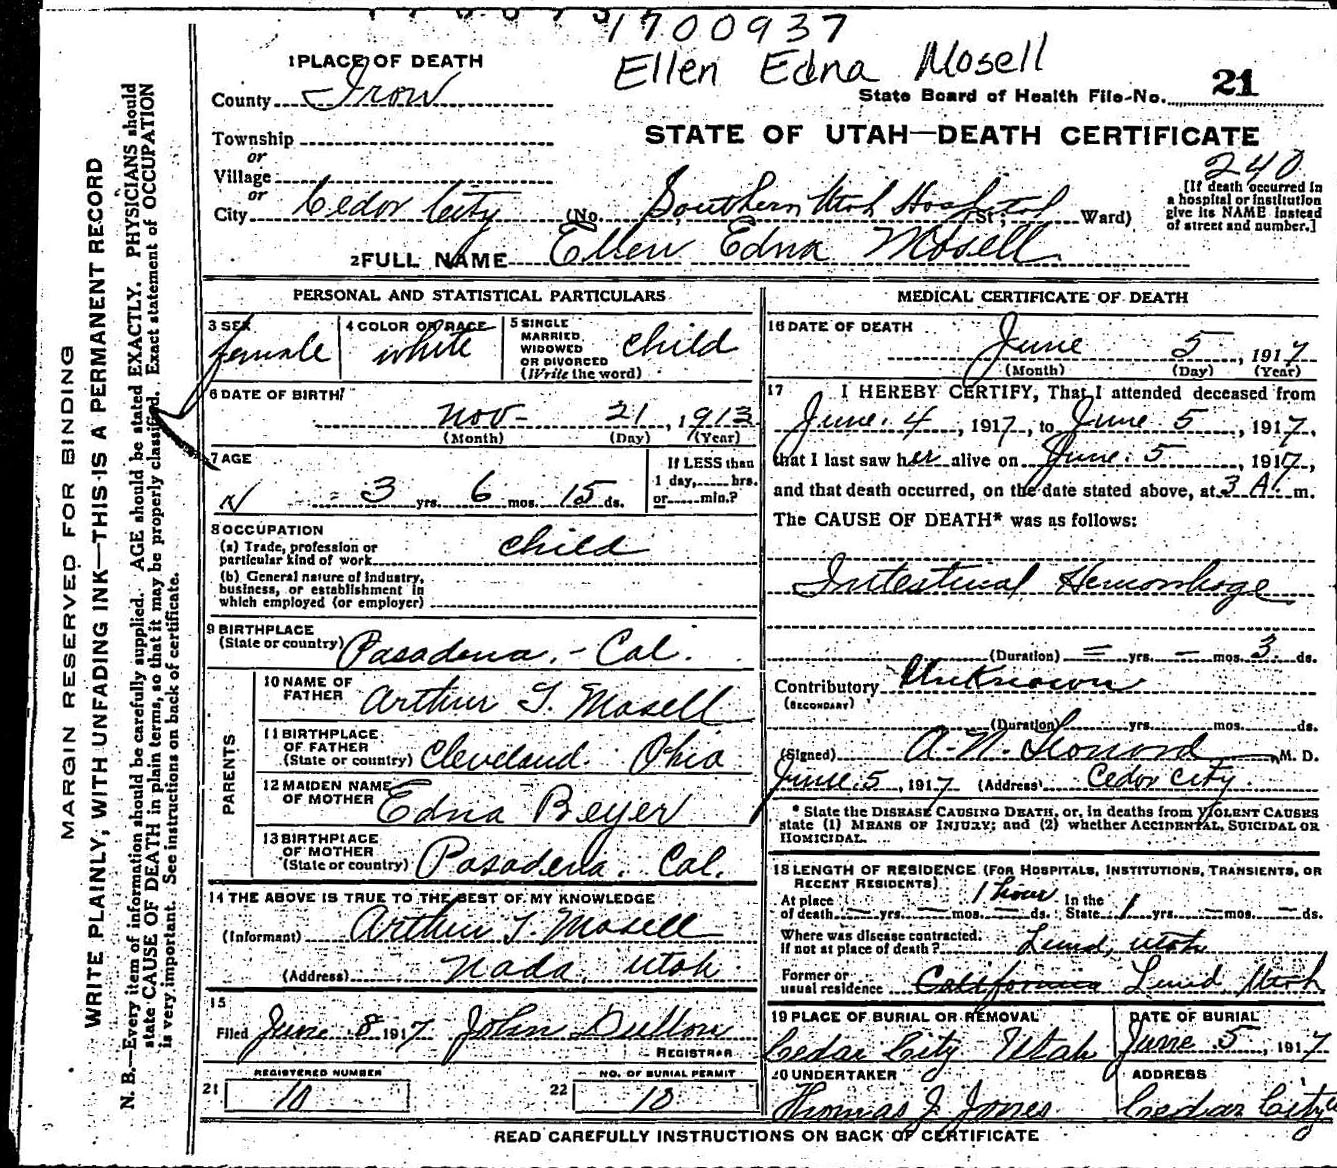 1700937
Ellen Edna Mosell
1 PLACE OF DEATH
County Iron
State Board of Health File-No. 21
Township
or
STATE OF UTAH—DEATH CERTIFICATE
Village
or
240
City Cedar City (No. Southern Utah Hospital St; Ward)
[If death occurred in
a hospital or institution
give its NAME instead
of street and number.]
2 FULL NAME Ellen Edna Mosell
PERSONAL AND STATISTICAL PARTICULARS
3 SEX female
4 COLOR OR RACE white
5 SINGLE
MARRIED
WIDOWED
OR DIVORCED
(Write the word)
child
6 DATE OF BIRTH
Nov- 21, 1913
(Month) (Day) (Year)
7 AGE
3 yrs. 6 mos. 15 ds.
If LESS than
1 day, hrs.
or min.?
8 OCCUPATION
(a) Trade, profession or
particular kind of work child
(b) General nature of industry,
business, or establishment in
which employed (or employer)
9 BIRTHPLACE
(State or country) Pasadena. - Cal.
PARENTS
10 NAME OF
FATHER Arthur T. Mosell
11 BIRTHPLACE
OF FATHER
(State or country) Cleveland. Ohio
12 MAIDEN NAME
OF MOTHER Edna Beyer
13 BIRTHPLACE
OF MOTHER
(State or country) Pasadena. Cal.
14 THE ABOVE IS TRUE TO THE BEST OF MY KNOWLEDGE
(Informant) Arthur T. Mosell
(Address) Nada, Utah
15
Filed June 8 1917 John
REGISTRAR
REGISTERED NUMBER
21 10
NO. OF BURIAL PERMIT
22 10
MEDICAL CERTIFICATE OF DEATH
16 DATE OF DEATH
June 5, 1917
(Month) (Day) (Year)
17 I HEREBY CERTIFY, That I attended deceased from
June. 4, 1917, to June 5, 1917,
that I last saw her alive on June. 5, 1917,
and that death occurred, on the date stated above, at 3 A. m.
The CAUSE OF DEATH* was as follows:
Intestinal Hemorrhage
(Duration) = yrs. - mos. 3 ds.
Contributory Unknown
(SECONDARY)
(Duration) yrs. mos. ds.
(Signed) A. N. Leonard M. D.
June. 5, 1917 (Address) Cedar City.
* State the DISEASE CAUSING DEATH, or, in deaths from VIOLENT CAUSES
state (1) MEANS OF INJURY; and (2) whether ACCIDENTAL, SUICIDAL OR
HOMICIDAL.
18 LENGTH OF RESIDENCE (FOR HOSPITALS, INSTITUTIONS, TRANSIENTS, OR
RECENT RESIDENTS) 1 hour
At place In the
of death — yrs. — mos. — ds. State 1 yrs. — mos. — ds.
Where was disease contracted.
If not at place of death? Lund, Utah
Former or
usual residence California Lund Utah
19 PLACE OF BURIAL OR REMOVAL
Cedar City Utah
DATE OF BURIAL
June 5, 1917
20 UNDERTAKER
Thomas J. Jones
ADDRESS
Cedar City
READ CAREFULLY INSTRUCTIONS ON BACK OF CERTIFICATE
MARGIN RESERVED FOR BINDING
WRITE PLAINLY, WITH UNFADING INK—THIS IS A PERMANENT RECORD
N. B.—Every item of information should be carefully supplied. AGE should be stated EXACTLY. PHYSICIANS should
state CAUSE OF DEATH in plain terms, so that it may be properly classified. Exact statement of OCCUPATION
is very important. See instructions on back of certificate.